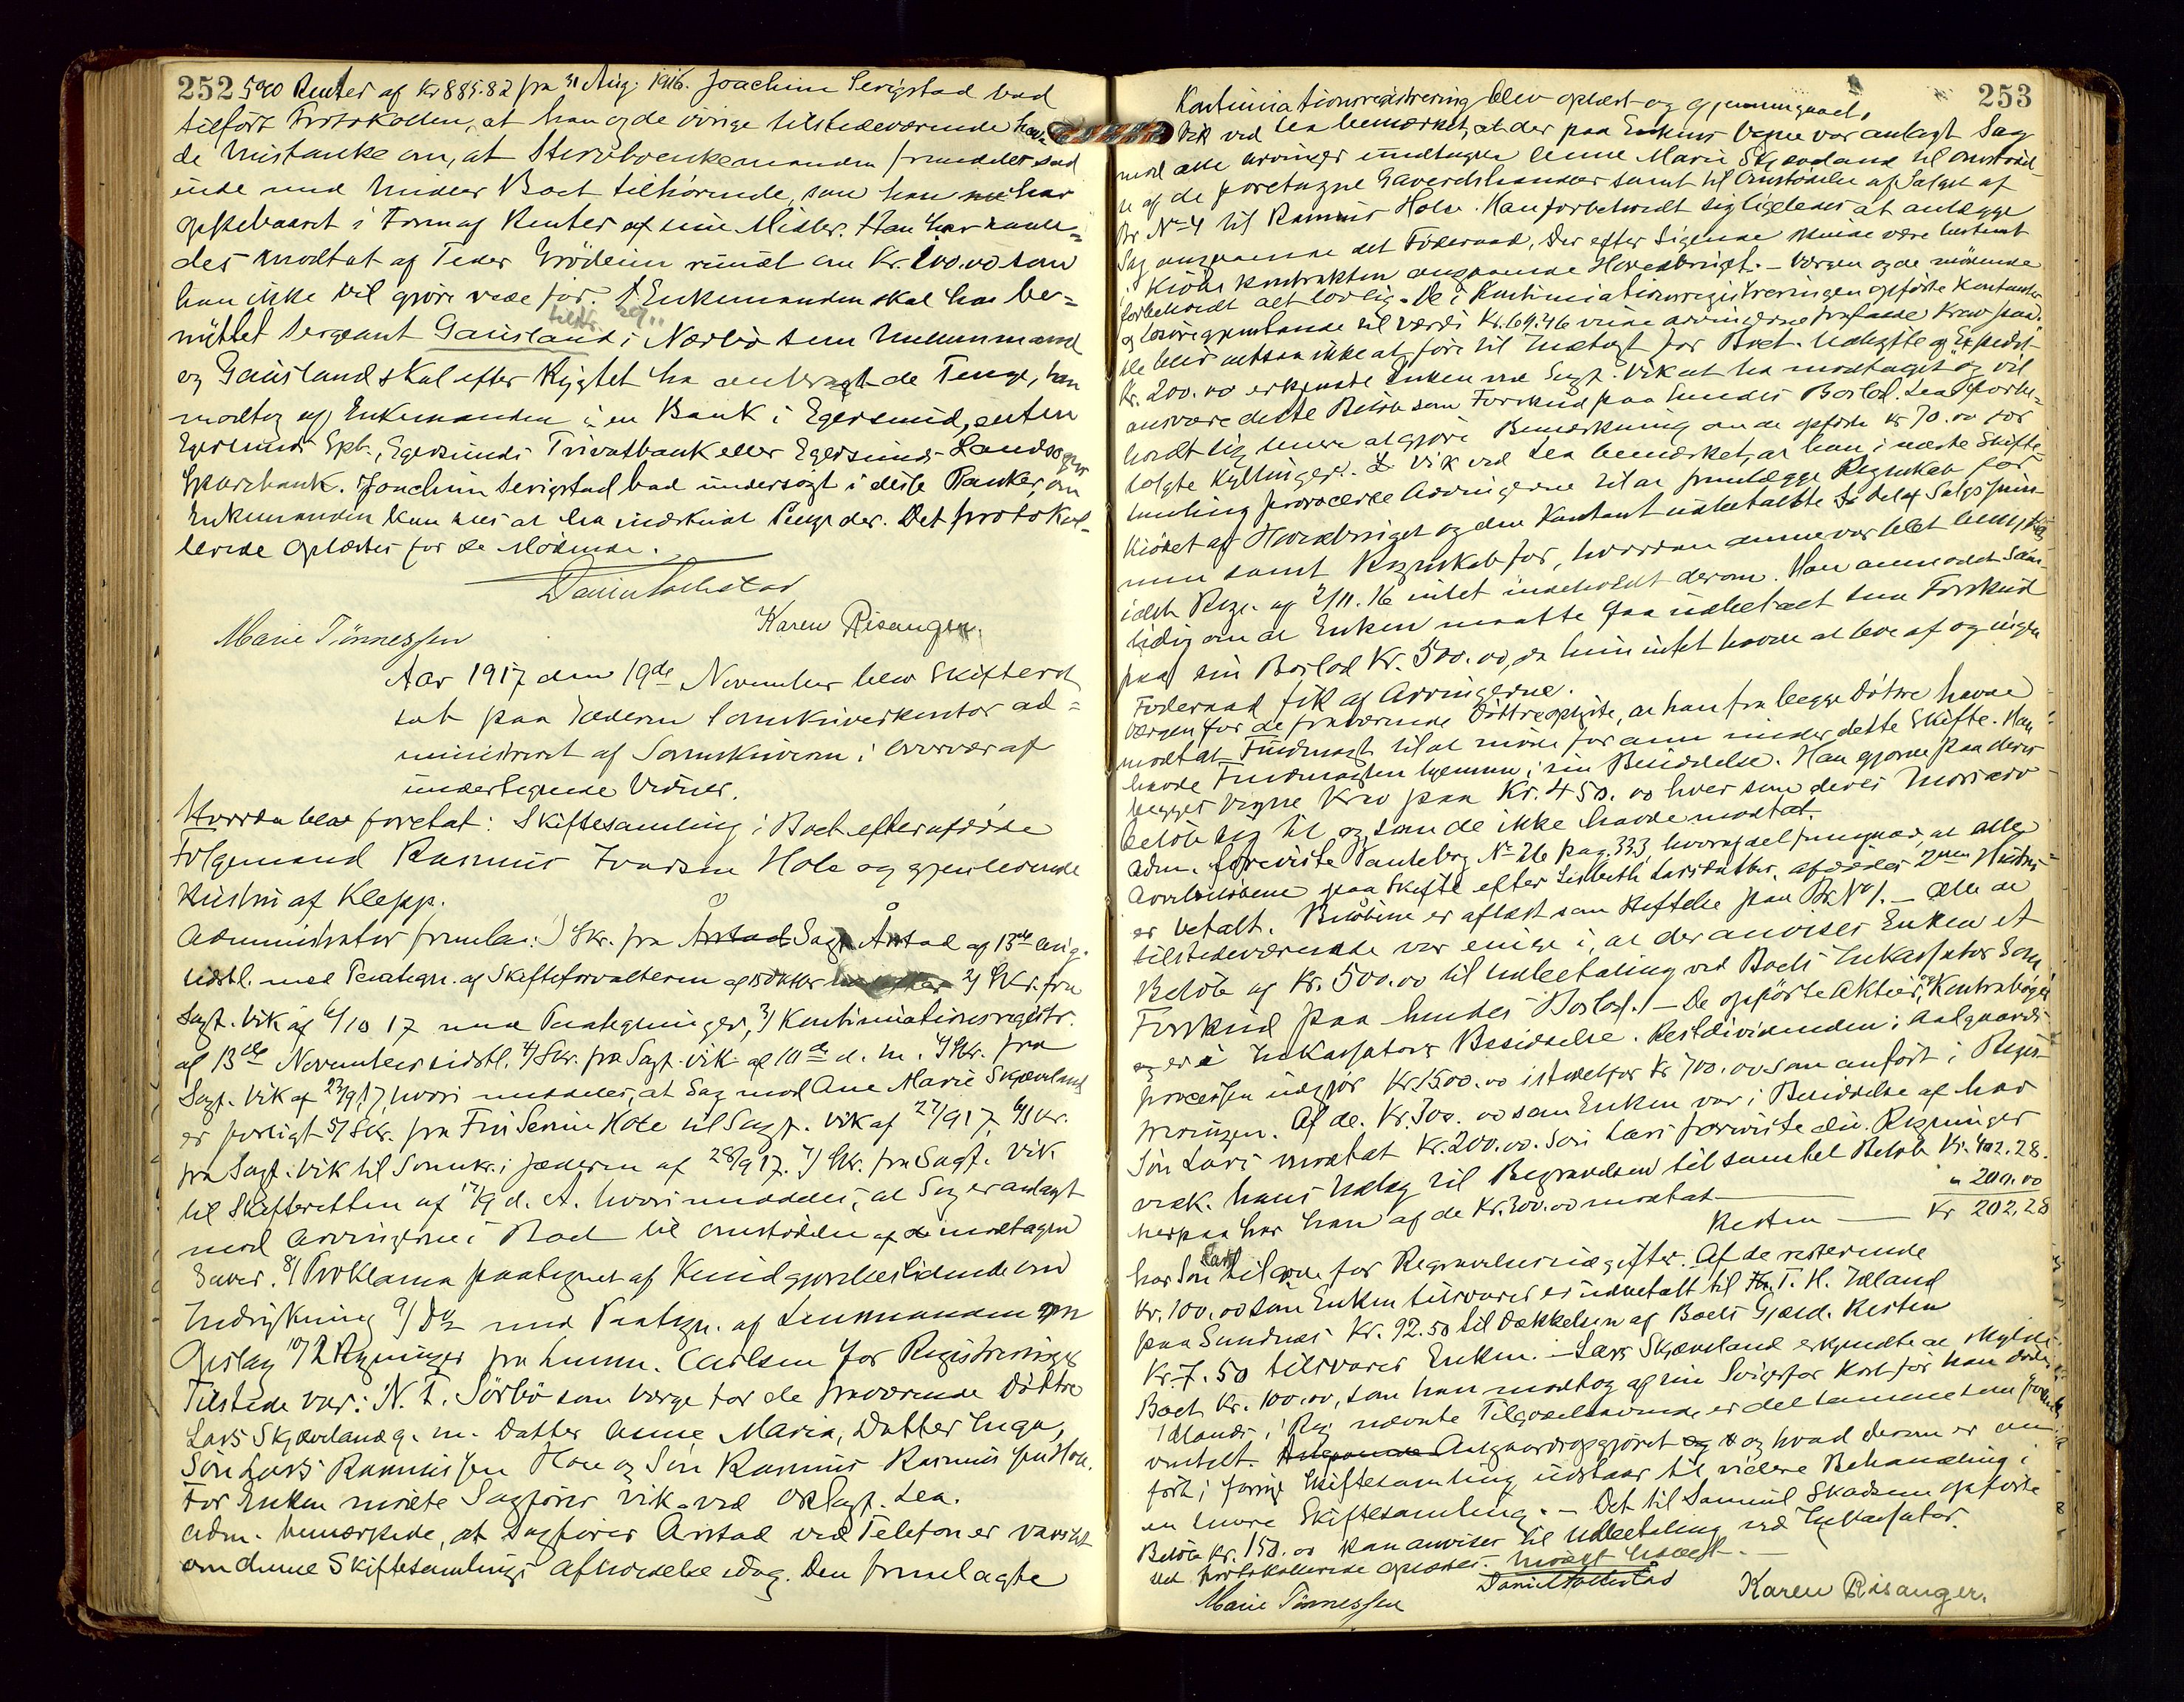 252
5% Renter af Kr 885.82 fra 31 Aug. 1916. Joachim Serigstad bad
tilført Protokollen, at han og de øvrige tilstedeværende hav-
de Mistanke om, at Sterbboenkemanden fremdeles sad
inde med Midler Boet tilhørende, som han har
opsebaaret i Form af Renter af sine Midler. Han har saale=
des modtat af Peder Grödeim rundt om Kr. 200.00 som
han ikke vil gjøre rede for. Enkemanden skal ha be=
nyttet Sergeant Gausland i Nærbö som Mellemmand
og Gausland skal efter Rygtet ha anbragt de Penge, han
modtog af Enkemanden i en Bank i Egersund, enten
Egersunds Spb., Egersunds Privatbank eller Egersunds Landsogns
Sparebank. Joachim Serigstad bad undersøgt i disse Banker, om
Enkemanden kan sees at ha indskudt Penge der. Det protokol-
lerede oplæstes for de Mödende.
Daniel Sollistad
Marie Tönnessen
Karen Risanger.
Aar 1917 den 19de November blev Skifteret
sat paa Jæderen Sorenskriverkontor ad=
ministreret af Sorenskriveren i Overvær af
undertegnede Vidner.
Hvorda blev foretat: Skiftesamling i Boet efter afdøde
Følgemand Rasmus Ivarsen Hole og gjenlevende
Hustru af Klepp.
Administrator fremla: 1) Skr. fra Årstad Sagf. Årstad af 13de Aug.
sidstl. med Paategn. af Skifteforvalteren af 15 Oktbr 2) Skr. fra
Sagf. Vik af 6/10 17 med Paategninger, 3) Kontinuationsregistr.
af 13de November sidstl. 4) Skr. fra Sagf. Vik af 10de d. M. 4) Skr. fra
Sagf. Vik af 27/9 17, hvori meddeles, at Sag mod Ane Marie Skjæveland
er forligt 5) Skr. fra Fru Serine Hole til Sagf. Vik af 27/9 17, 6) Skr.
fra Sagf. Vik til Sorenskr. i Jæderen af 28/9 17. 7) Skr. fra Sagf. Vik
til Skifteretten af 17/9 d. A. hvori meddeles, at Sag er anlagt
mod Arvingerne i Boet til Omstödelse af de modtagne
Gaver. 8) Proklama paategnet af Kundgjörelsestidende om
Indrykning 9) Do med Paategn. af Lensmanden om
Opslag 10) 2 Regninger fra Lensm. Carlsen for Registreringer
Tilstede var: N. T. Sörbö som Værge for de fraværende Døttre
Lars Skjæveland g. m. Datter Anne Maria, Datter Inga,
Sön Lars Rasmussen Hole og Sön Rasmus Rasmussen Hole.
For Enken mødte Sagfører Vik ved O.R.Sagf. Lea.
Adm. bemærkede, at Sagfører Årstad ved Telefon er varslet
om denne Skiftesamlings Afholdelse idag. Den fremlagte
253
Kontinuationsregistrering blev oplæst og gjennemgaaet.
Vik ved Lea bemærket, at der paa Enkens Vegne var anlagt Sag
mod alle Arvinger undtagen Anne Marie Skjæveland til Omstödel-
se af de foretagne Gaverdshander samt til Omstödelse af Salget af
Br. No 4 til Rasmus Hole. Han forbeholdt sig ligeledes at anlægge
Sag angaaende det Föderaad, der efter Sigende skulde være bestemt
i Kjøbekontrakten angaaende Hovedbruget. – Værgen og de mødende
forbeholdt alt lovlig. De i Kontinuationsregistreringen opførte Kontanter
og Lösöregjenstande til Værdi Kr. 69.46 vilde Arvingerne frafalde Krav paa.
De blir altsaa ikke at före til Indtægt for Boet. Udlagte og Expedit.
Kr. 200.00 erkjendte Enken ved Sagf. Vik at ha modtaget og vil
ansvare dette Belöb som Forskud paa hendes Boslod. Lea forbe=
holdt sig senere at gjöre Bemærkning om de opførte Kr 70.00 for
solgte Kyllinger. Vik ved Lea bemærket, at han i næste Skifte-
samling provocerede Arvingerne til at fremlægge Regnskab for
Kjöbet af Hovedbruget og den Kontant udbetalte Del af Salgssum-
men samt Regnskab for, hvordan denne var blet benyttet
idet Regn. af 2/11. 16 intet indeholdt derom. Han anmodet sam-
tidig om at Enken maatte faa udbetalt som Forskud
paa sin Boslod Kr. 500.00, da hun intet havde at leve af og ingen
Föderaad fik af Arvingerne.
Værgen for de fraværende Döttre oplyste, at han fra begge Döttre havde
modtat Fuldmagt til at möde for dem under dette Skifte. Han
havde Fuldmagten hjemme i sin Besiddelse. Han gjorde paa deres
begges Vegne Krav paa Kr. 450.00 hver som deres Morsarv
belöb sig til og som de ikke havde modtat.
Adm. foreviste Panteborg No 26 pag. 333, hvoraf det fremgaar, at alle
Arvebelöbene paa Skifte efter Lisbeth Larsdatter, afdödes 2den Hustru
er betalt. Belöbene er aflæst som Heftelse paa Br. No 1. – Alle de
tilstedeværende var enige i, at der anvises Enken et
Belöb af Kr. 500.00 til Udbetaling ved Boets Inkassator som
Forskud paa hendes Boslod. – De opførte Aktier, og Kontrabøger
og er i Inkassators Besiddelse. Restdividenden i Aalgaards-
processen udgjör Kr. 1500.00 istedetfor Kr 700.00 som anført i Regis-
treringen. Af de Kr. 300.00 som Enken var i Besiddelse af har
Sön Lars modtat Kr. 200.00. Sön Lars foreviste div. Regninger
vedk. hans Udlæg til Begravelsen til samlet Belöb Kr. 402.28.
herpaa har han af de Kr. 300.00 modtat — „ 200.00
Resten — Kr 202.28
har Sön Lars tilgode for Begravelsesudgifter. Af de resterende
Kr. 100.00 som Enken tilsvarer er udbetalt til T. H. Iteland
paa Sandnæs Kr. 92.50 til Dækkelsen af Boets Gjæld. Resten
Kr. 7.50 tilsvarer Enken. – Lars Skjæveland erkjendte at skylde
Boet Kr. 100.00, som han modtog af sin Svigerfar kort før han döde,
i Reg. nævnte Tilgodehavende er det samme som
omtalt. Aalgaardsopgjøret og hvad derom er an-
ført i forrige Skiftesamling udstaar til videre Behandling i
en senere Skiftesamling. – Det til Samuel Skadsem opførte
Belöb Kr. 150.00 kan anvises til Udbetaling ved Inkassator.
Det protokollerede oplæstes. Mødet hævet.
Marie Tönnessen
Daniel Sollistad
Karen Risanger.